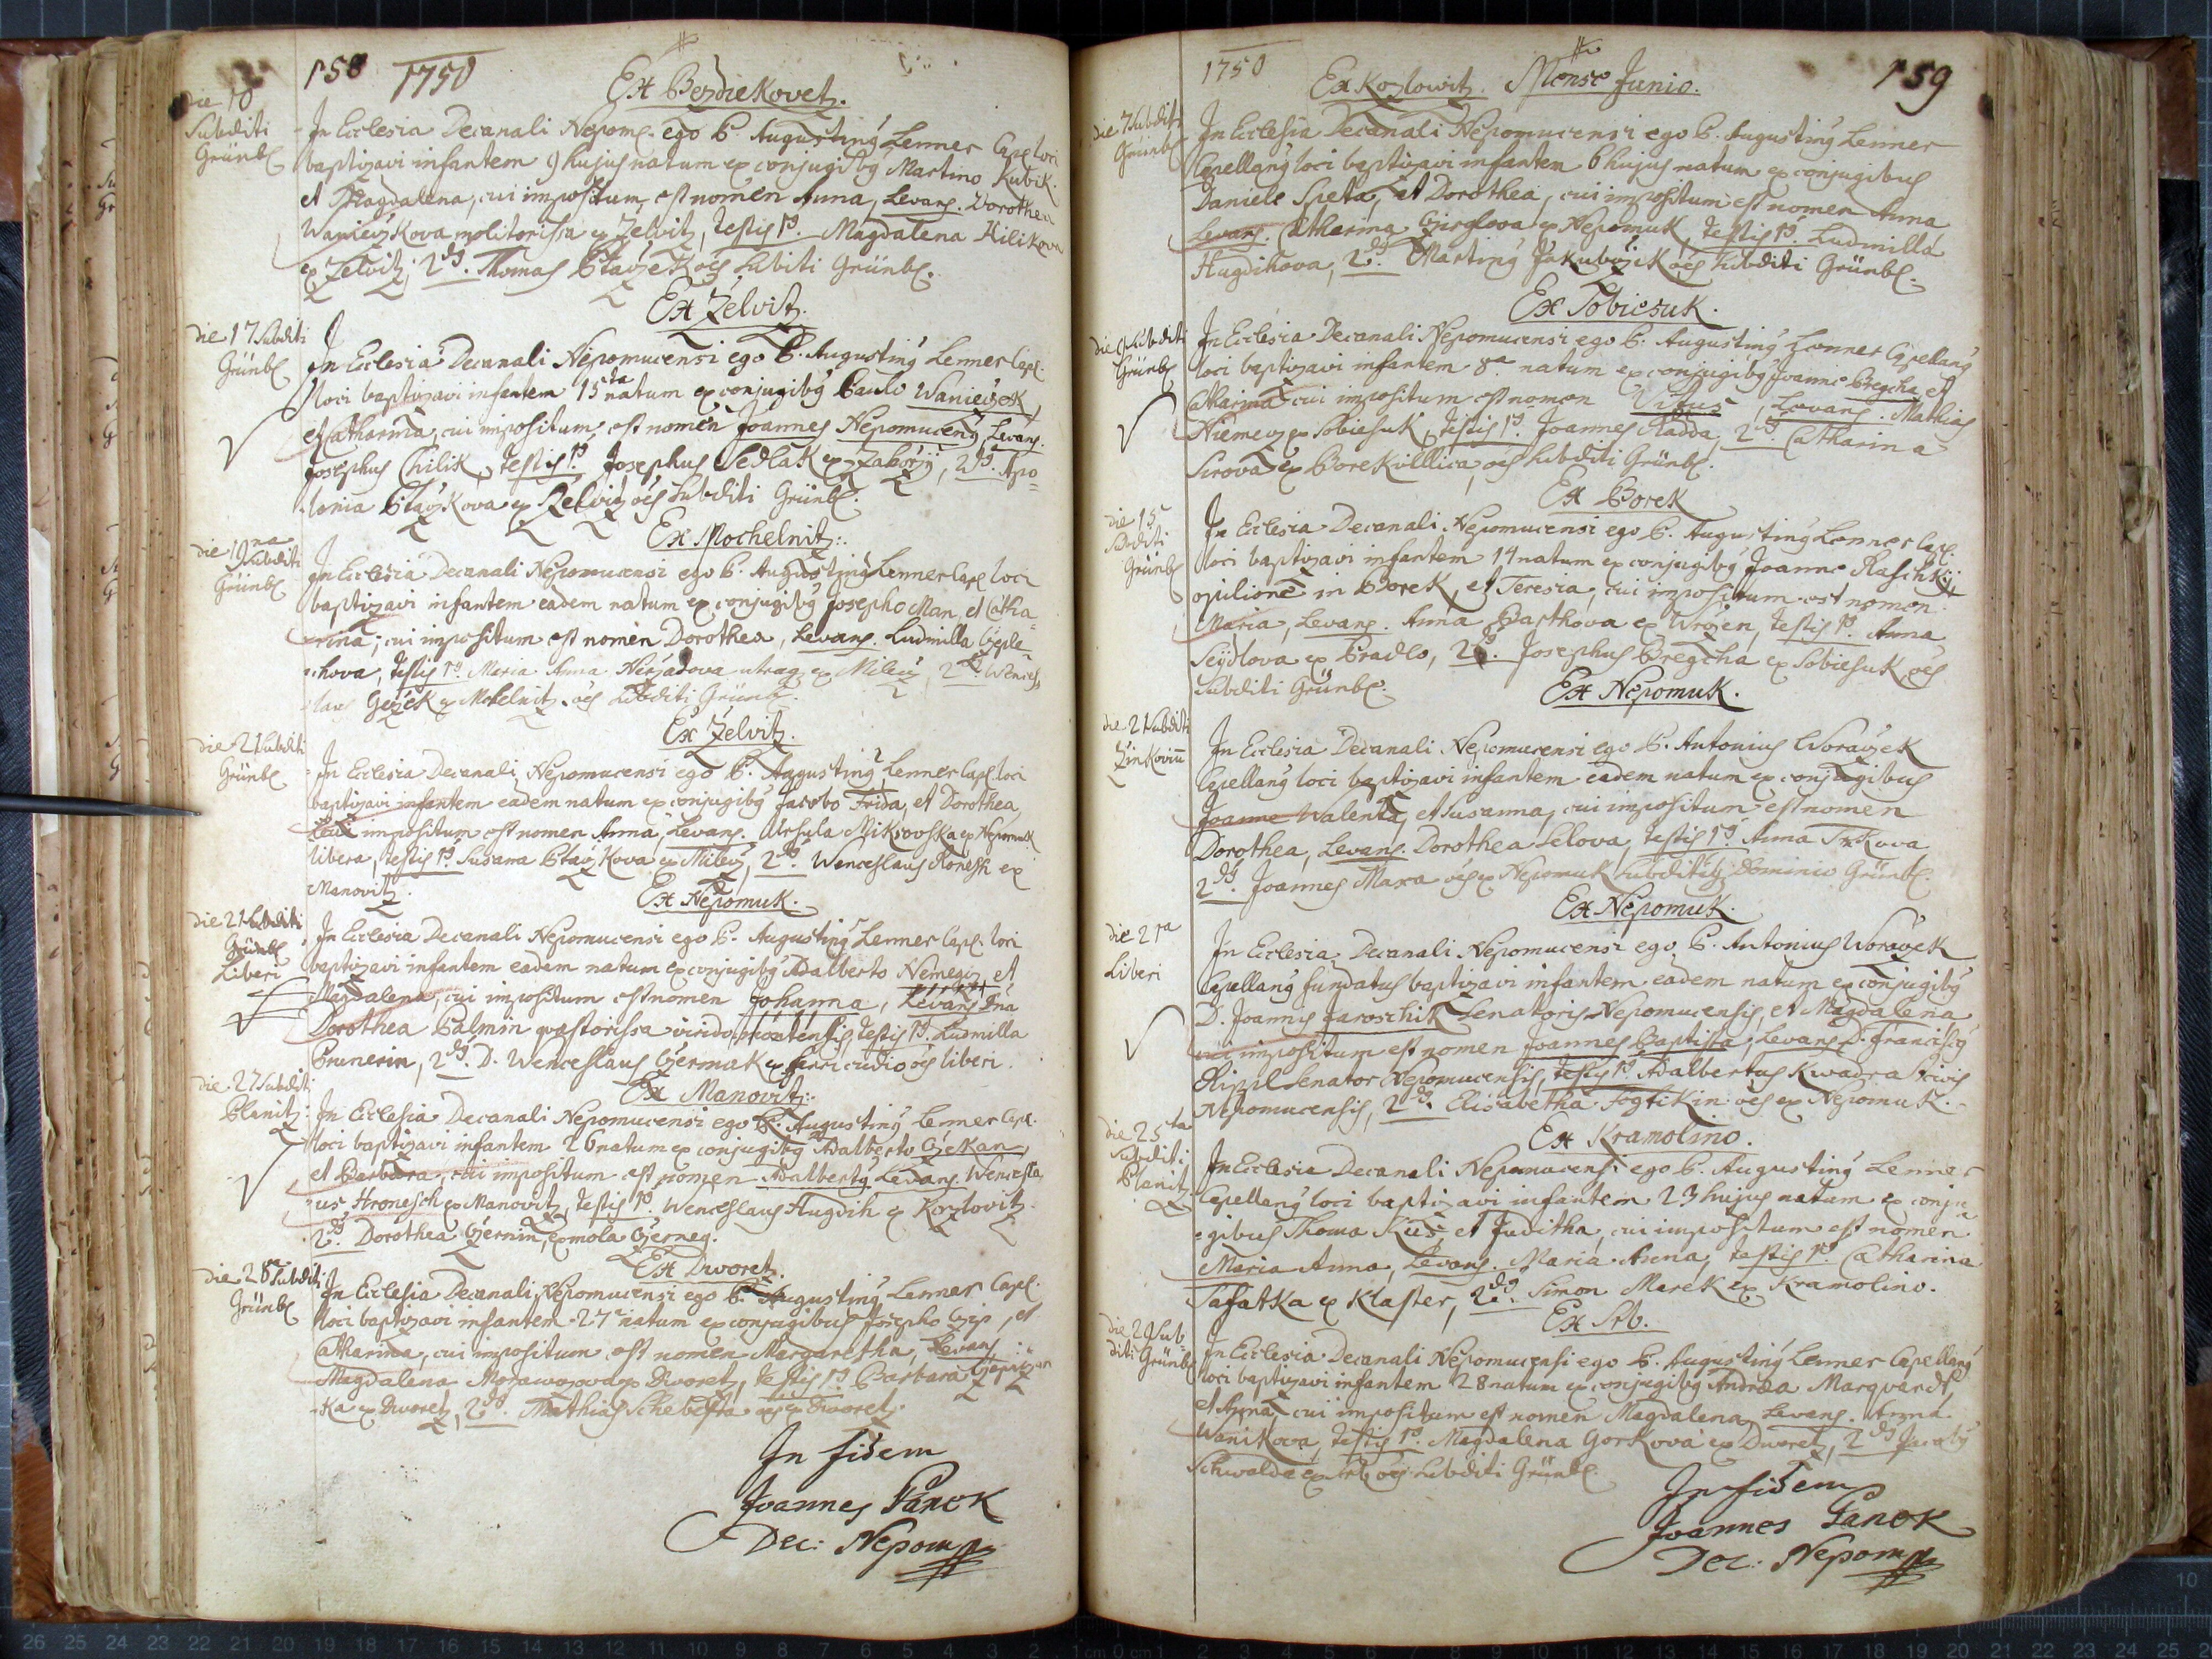 158 1750
Ex Bezdiekovetz.
die 10
Subditi
Grünb.
In Ecclesia Decanali Nepom. ego P. Augustinus Lenner Capl. loci
baptizavi infantem 9 hujus natum ex conjugibus Martino Kubik
et Magdalena, cui impositum est nomen Anna, Levans. Dorothea
molitorissa ex Zelvitz, testis 1us. Magdalena Kilikova
ex Zelvitz, 2dus. Thomas oes subditi Grünb.
Ex Zelvitz.
die 17 Subditi
Grünb.
In Ecclesia Decanali Nepomucensi ego P. Augustinus Lenner Capl.
loci baptizavi infantem 15ta natum ex conjugibus Paulo Wanieczek
et Catharina, cui impositum est nomen Joannes Nepomucenus, Levans.
Josephus Chilik, testis 1us. Josephus Sedlak ex Zaborzij, 2dus. Apo=
lonia ex Zelvitz oes subditi Grünb.
Ex Mochelnitz.
die 19na
Subditi
Grünb.
In Ecclesia Decanali Nepomucensi ego P. Augustinus Lenner Capl. loci
baptizavi infantem eadem natum ex conjugibus Josepho Man et Catha=
rina, cui impositum est nomen Dorothea, Levans. Ludmilla
testis 1us. Maria Anna utraq ex Milecz, 2dus.
ex Mohelnitz oes subditi Grünb.
Ex Zelvitz.
die 21 Subditi
Grünb.
In Ecclesia Decanali Nepomucensi ego P. Augustinus Lenner Capl. loci
baptizavi infantem eadem natum ex conjugibus Jacobo Frida, et Dorothea
cui impositum est nomen Anna, Levans. Ursula Mikrovska ex Nepomuk
libera, testis 1us. Susana ex Milecz, 2dus. Wenceslaus ex
Manovitz.
Ex Nepomuk.
die 21 Subditi
Grünb.
Liberi
In Ecclesia Decanali Nepomucensi ego P. Augustinus Lenner Capl. loci
baptizavi infantem eadem natum ex conjugibus Adalberto Nemecz, et
Magdalena, cui impositum est nomen Johanna, Levans Dna
Dorothea Palmin quæstorissa testis 1us. Ludmilla
Prunerin, 2dus. D. Wenceslaus Czermak ex oes liberi.
Ex Manovitz.
die 27 Subditi
Planitz.
In Ecclesia Decanali Nepomucensi ego P. Augustinus Lenner Capl.
loci baptizavi infantem 26 natum ex conjugibus Adalberto Czekan,
et Barbara, cui impositum est nomen Adalbertus Levans. Wencesla
us Hronesch ex Manovitz, testis 1us. Wenceslaus Hugdih ex Kozlovitz
2dus. Dorothea Czernin, ex mola Czerneg.
Ex Dworetz.
die 28va Subditi
Grünb.
In Ecclesia Decanali Nepomucensi ego P. Augustinus Lenner Capl.
loci baptizavi infantem 27 natum ex conjugibus Josepho et
Catharina, cui impositum est nomen Margaretha, Levans.
Magdalena ex Dworetz, testis 1us. Barbara
ka ex Dworetz, 2dus. Mathias Schebesta oes ex Dworetz.
In fidem
Joannes Panek
Dec: Nepom
1750
159
Ex Kozlowitz. Mense Junio.
die 7 Subditi
Grünb.
In Ecclesia Decanali Nepomucensi ego P. Augustinus Lenner
Capellanus loci baptizavi infantem 6 hujus natum ex conjugibus
Daniele et Dorothea, cui impositum est nomen Anna
Levans. Catharina ex Nepomuk, testis 1us. Ludmilla
Hugdihova, 2dus. Martinus oes subditi Grünb.
Ex Sobiesuk.
die 9 Subditi
Grünb.
In Ecclesia Decanali Nepomucensi ego P. Augustinus Lenner Capellanus
loci baptizavi infantem 8va natum ex conjugibus Joanne Bregcha et
Catharina cui impositum est nomen Vitus, Levans. Mathias
Niemecz ex Sobiesuk, testis 1us. Joannes Radda, 2dus. Catharina
Sirova ex Borek villica, oes subditi Grünb.
Ex Borek
die 15
Subditi
Grünb.
In Ecclesia Decanali Nepomucensi ego P. Augustinus Lenner Capl.
loci baptizavi infantem 14 natum ex conjugibus Joanne
opilione in Borek, et Teresia, cui impositum est nomen
Maria, Levans. Anna ex testis 1us. Anna
Seydlova ex Pradlo, 2dus. Josephus Bregcha ex Sobiesuk oes
Subditi Grünb.
Ex Nepomuk.
die 21 Subditi
In Ecclesia Decanali Nepomucensi ego P. Antonius Woraczek
Capellanus loci baptizavi infantem eadem natum ex conjugibus
Joanne Walenta, et Susanna, cui impositum est nomen
Dorothea, Levans. Dorothea Selova, testis 1us. Anna
2dus. Joannes Maxa oes ex Nepomuk subditi Dominio Grünb.
Ex Nepomuk.
die 21ma
Liberi
In Ecclesia Decanali Nepomucensi ego P. Antonius Woraczek
Capellanus fundatus baptizavi infantem eadem natum ex conjugibus
D. Joannis Jaroschik Senatoris Nepomucensis, et Magdalena
cui impositum est nomen Joannes Baptista, Levans D. Franciscus
Senator Nepomucensis, testis 1us. Adalbertus Kwadrat civis
Nepomucensis, 2dus. Elisabetha oes ex Nepomuk.
Ex Kramolino.
die 25ta
Subditi
Planitz
In Ecclesia Decanali Nepomucensi ego P. Augustinus Lenner
Capellanus loci baptizavi infantem 23 hujus natum ex conju
=gibus Thoma et Juditha, cui impositum est nomen
Maria Anna, Levans. Maria Anna, testis 1us. Catharina
Safatka ex Klaster, 2dus. Simon Marek ex Kramolino.
Ex Srb.
die 29 Sub=
diti Grünb.
In Ecclesia Decanali Nepomucensi ego P. Augustinus Lenner Capellanus
loci baptizavi infantem 28 natum ex conjugibus Andrea Marqvardt,
et Anna, cui impositum est nomen Magdalena, Levans. Anna
Wanikova, testis 1us. Magdalena Gorkova ex Dworetz, 2dus Jacobus
Schwalda ex Srb oes subditi Grünb.
In fidem
Joannes Panek
Dec: Nepom
26 25 24 23 22 21 20 19 18 17 16 15 14 13 12 11 10 9 8 7 6 5 4 3 2 1 cm 0 cm 1 2 3 4 5 6 7 8 9 10 11 12 13 14 15 16 17 18 19 20 21 22 23 24 25
10